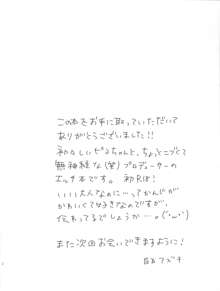 この本をお手に取っていただいて
ありがとうございました!!
初々しいピュちゃんと、ちょっとニブくて
無神経な(笑)プロデューサーの
エッチ本です。初R18!
いい大人なのに…ってかんじが
かわいくて好きなのですが、
伝わってるでしょうか…。(･ω･`)
また次回お会いできますように!